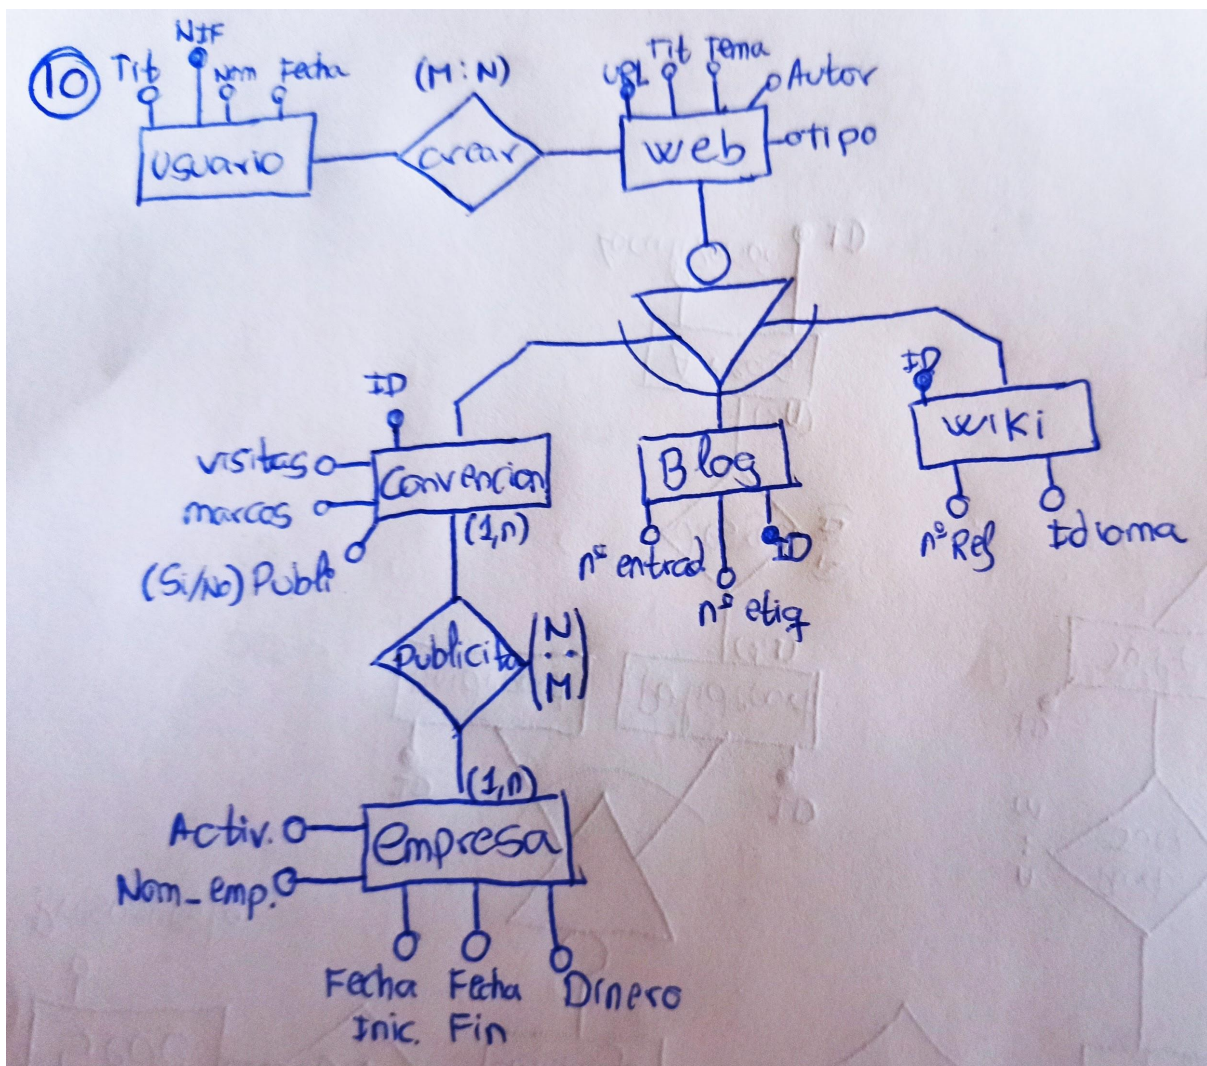 10
NIF
Tit
Nom
Fecha
(M:N)
URL
Tit
Tema
Autor
tipo
Usuario
crear
Web
ID
visitas
marcos
(Si/No) Publi
Convencion
(1,n)
Blog
nº entrad
nº etiq
ID
ID
Wiki
nº Ref
Idioma
publicita
(N:M)
(1,n)
Activ.
Nom_emp.
empresa
Fecha Inic.
Fecha Fin
Dinero